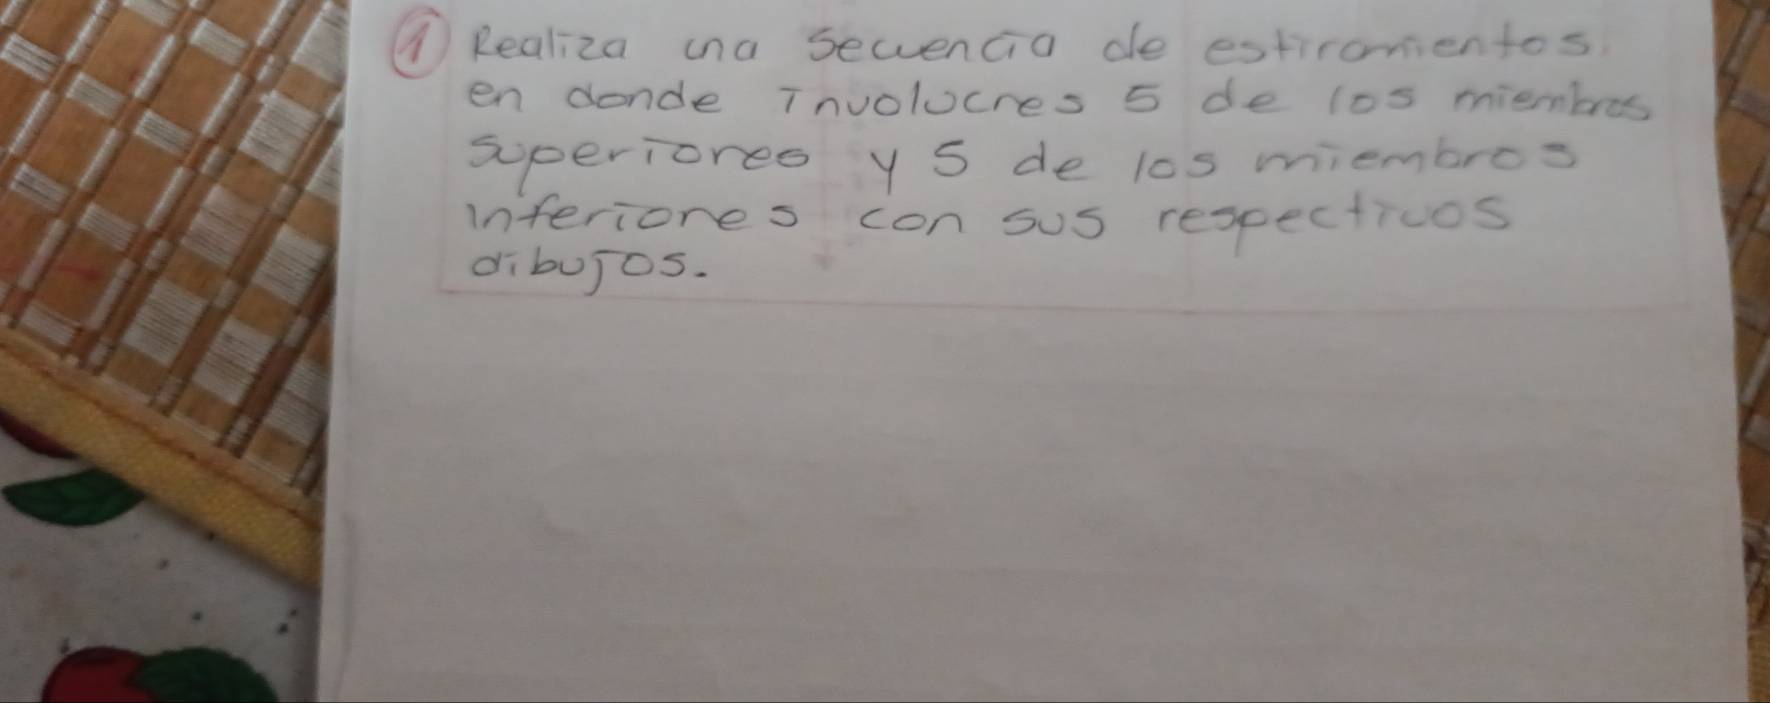 1 Realiza una secuencia de estiramientos.
en donde involucres 5 de los miembros
superiores y 5 de los miembros
inferiores con sus respectivos
dibujos.